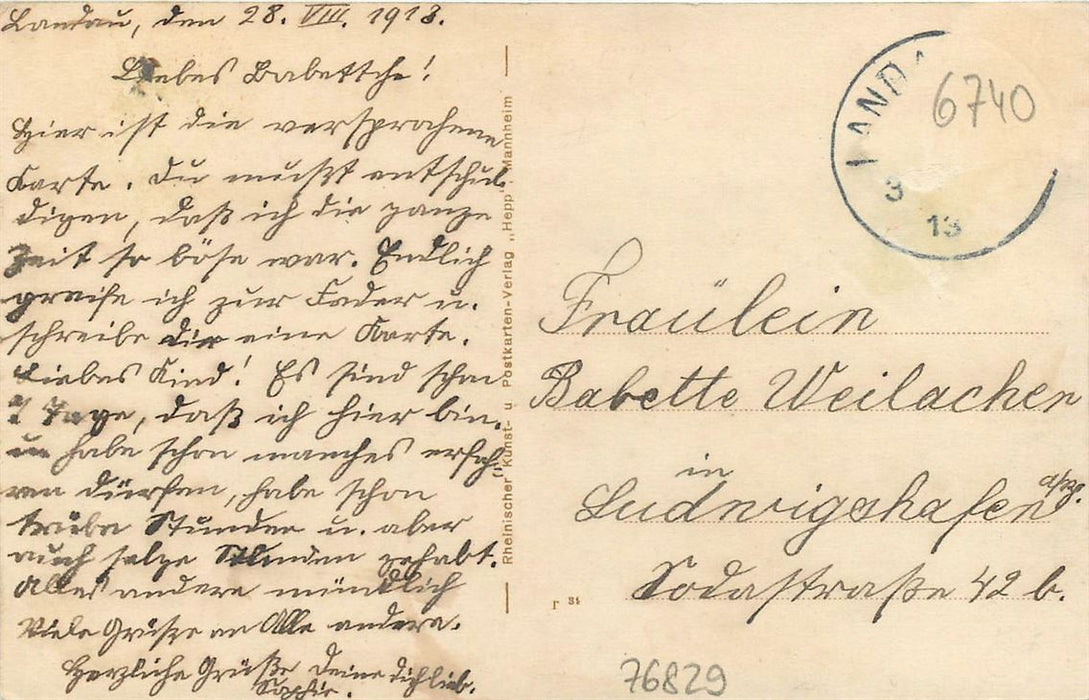 Landau, den 28. VIII. 1913.
Liebes Babettche!
Hier ist die versprochene
Karte. Du mußt entschul-
digen, daß ich die ganze
Zeit so böse war. Endlich
greife ich zur Feder u.
schreibe dir eine Karte.
Liebes Kind! Es sind schon
Tage, daß ich hier bin.
u. habe schon manches erfah-
ren dürfen, habe schon
trübe Stunden u. aber
auch selge Stunden gehabt.
Alles andere mündlich
Viele Grüße an Alle andern.
Herzliche Grüße Deine dich lieb.
Sophie.
Rheinischer Kunst- u Postkarten-Verlag „Hepp" Mannheim
LANDA
3
13
6740
Fräulein
Babette Weilacher
in
Ludwigshafen a/Rh.
Sodastraße 42 b.
76829